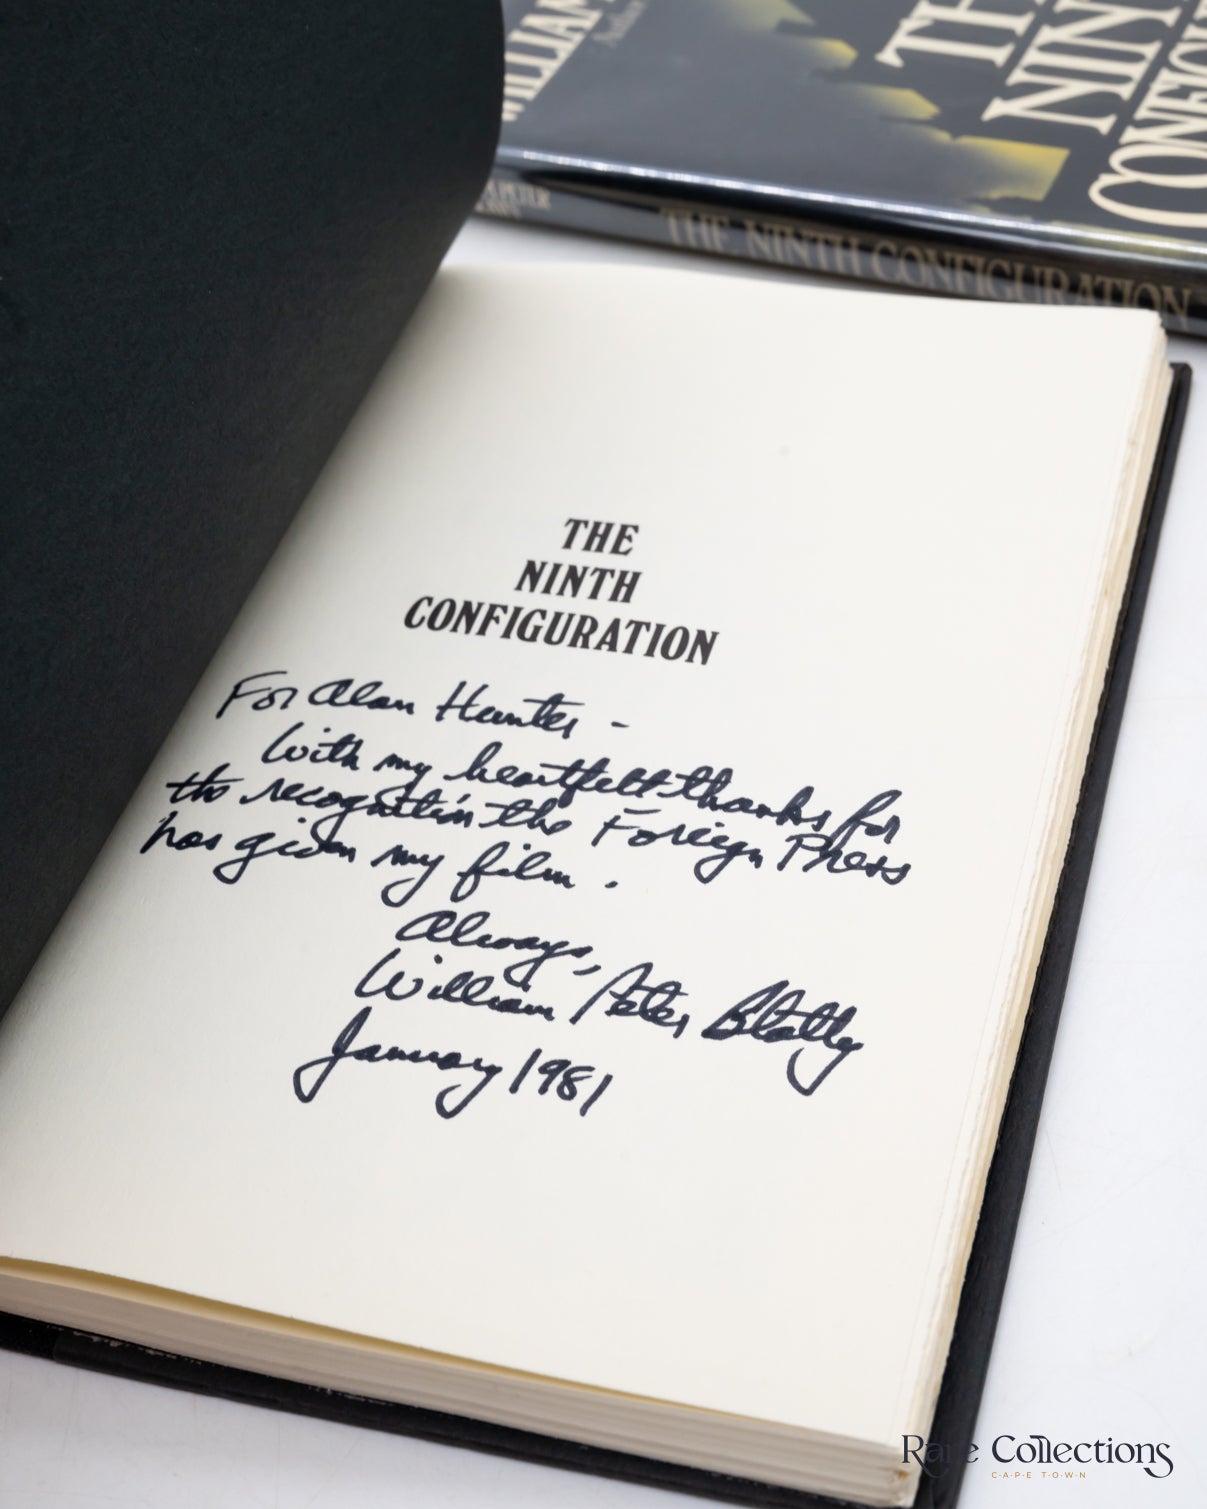 WILLIAM
Author
THE
NIN
CONFIGU
PETER
THE NINTH CONFIGURATION
THE
NINTH
CONFIGURATION
For Alan Hunter -
With my heartfelt thanks for
the recognition the Foreign Press
has given my film.
Always,
William Peter Blatty
January 1981
Rare Collections
CAPE TOWN